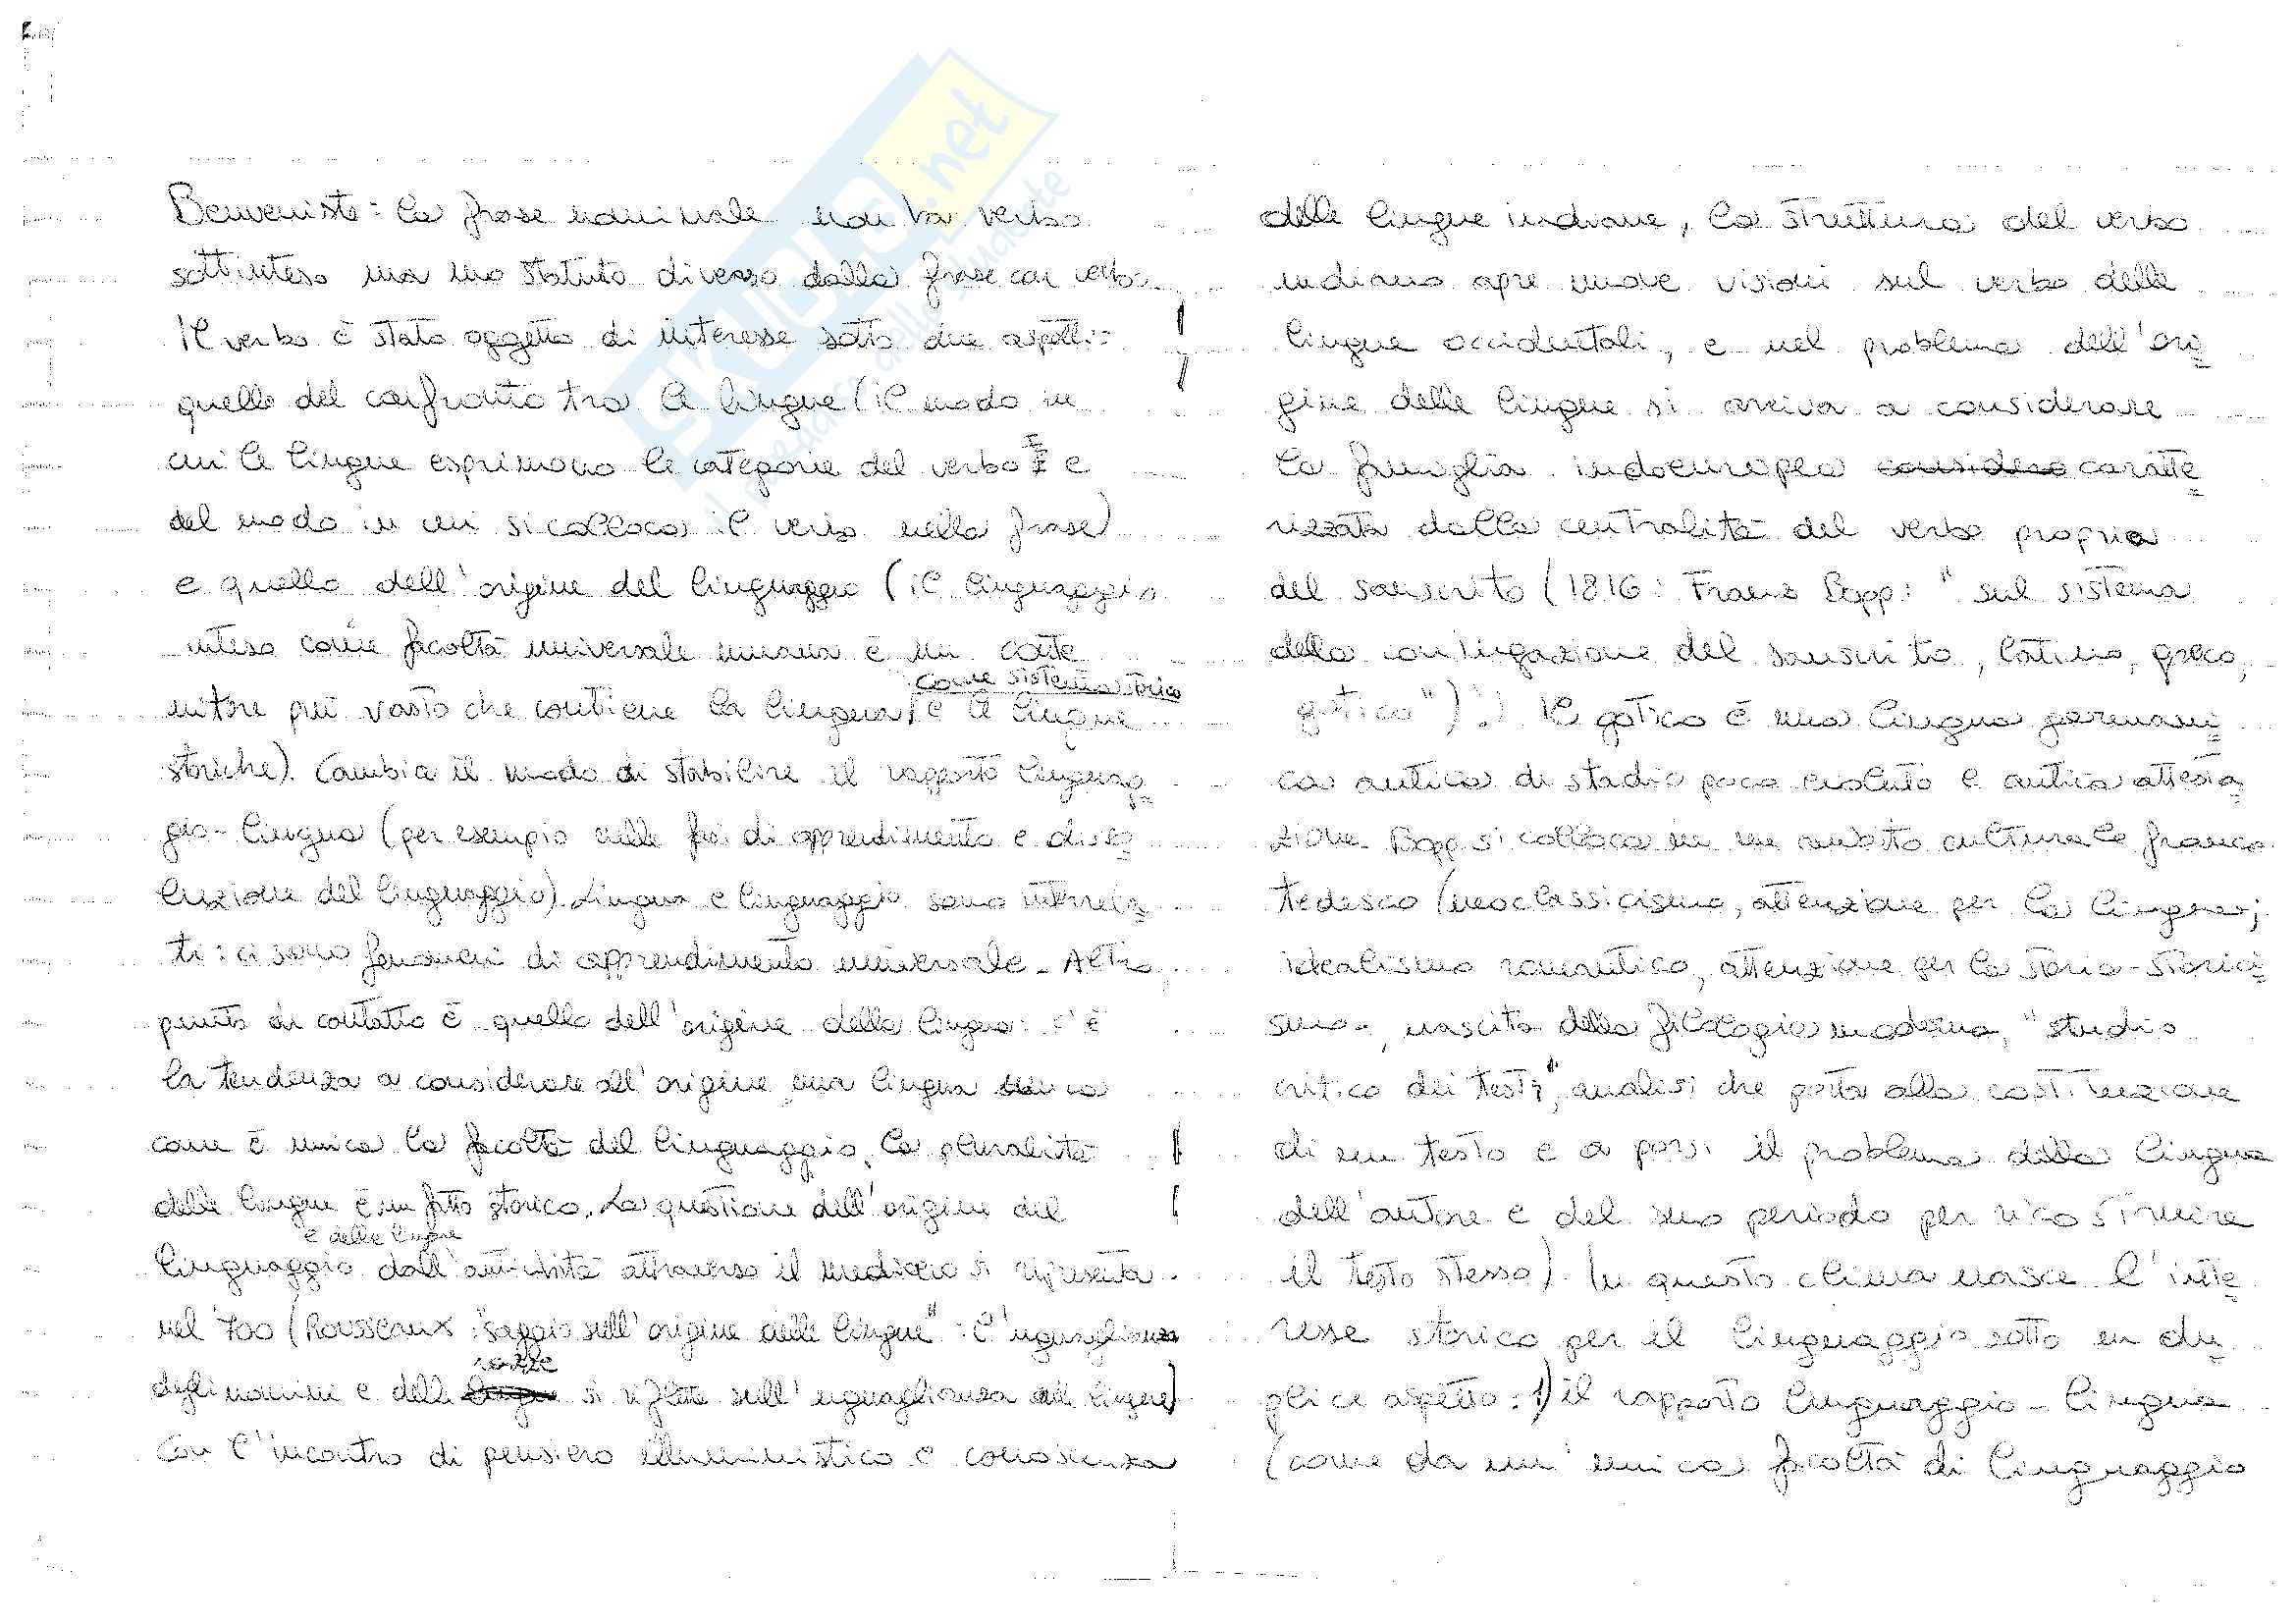 SKUOLA.net
Benveniste: la frase nominale non ha verbo
sottinteso ma uno statuto diverso dalla frase con verbo.
Il verbo è stato oggetto di interesse sotto due aspetti:
quello del confronto tra le lingue (il modo in
cui le lingue esprimono le categorie del verbo e
del modo in cui si colloca il verbo nella frase)
e quello dell'origine del linguaggio (il linguaggio
inteso come facoltà universale umana è un conte
come sistema storico
nitore più vasto che contiene la lingua e le lingue
storiche). Cambia il modo di stabilire il rapporto linguag=
gio-lingua (per esempio nelle fasi di apprendimento e disso=
luzione del linguaggio). Lingua e linguaggio sono interrela=
ti: ci sono fenomeni di apprendimento universale. Altro
punto di contatto è quello dell'origine della lingua: c'è
la tendenza a considerare all'origine una lingua unica
come è unica la facoltà del linguaggio, la pluralità
delle lingue è un fatto storico. La questione dell'origine del
e delle lingue
linguaggio dall'antichità attraverso il medioevo si ripresenta
nel '700 (Rousseaux: "saggio sull'origine delle lingue": l'uguaglianza
razze
degli uomini e delle lingue si riflette sull'uguaglianza delle lingue)
Con l'incontro di pensiero illuministico e conoscenza
delle lingue indiane, la struttura del verbo
indiano apre nuove visioni sul verbo delle
lingue occidentali, e nel problema dell'ori=
gine delle lingue si arriva a considerare
la famiglia indoeuropea considera caratte=
rizzata dalla centralità del verbo propria
del sanscrito (1816: Franz Bopp: "sul sistema
della coniugazione del sanscrito, latino, greco,
gotico"). Il gotico è una lingua germani=
ca antica di stadio poco evoluto e antica attesta=
zione. Bopp si colloca in un ambito culturale franco
tedesco (neoclassicismo, attenzione per la lingua;
idealismo romantico, attenzione per la storia-storici=
smo-, nascita della filologia moderna, "studio
critico dei testi", analisi che porta alla costituzione
di un testo e a porsi il problema della lingua
dell'autore e del suo periodo per ricostruire
il testo stesso). In questo clima nasce l'inte=
resse storico per il linguaggio sotto un du=
plice aspetto: 1) il rapporto linguaggio-lingua
(come da un'unica facoltà di linguaggio